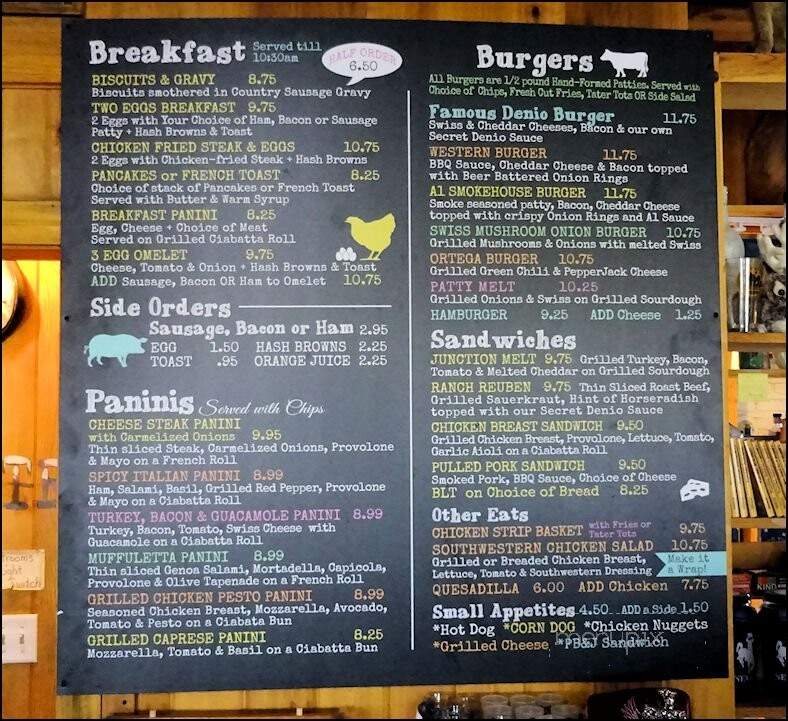 Breakfast Served till 10:30am
HALF ORDER
6.50
BISCUITS & GRAVY 8.75
Biscuits smothered in Country Sausage Gravy
TWO EGGS BREAKFAST 9.75
2 Eggs with Your Choice of Ham, Bacon or Sausage
Patty + Hash Browns & Toast
CHICKEN FRIED STEAK & EGGS 10.75
2 Eggs with Chicken-fried Steak + Hash Browns
PANCAKES or FRENCH TOAST 8.25
Choice of stack of Pancakes or French Toast
Served with Butter & Warm Syrup
BREAKFAST PANINI 8.25
Egg, Cheese + Choice of Meat
Served on Grilled Ciabatta Roll
3 EGG OMELET 9.75
Cheese, Tomato & Onion + Hash Browns & Toast
ADD Sausage, Bacon OR Ham to Omelet 10.75
Side Orders
Sausage, Bacon or Ham 2.95
EGG 1.50 HASH BROWNS 2.25
TOAST .95 ORANGE JUICE 2.25
Paninis Served with Chips
CHEESE STEAK PANINI
with Carmelized Onions 9.95
Thin sliced Steak, Carmelized Onions, Provolone
& Mayo on a French Roll
SPICY ITALIAN PANINI 8.99
Ham, Salami, Basil, Grilled Red Pepper, Provolone
& Mayo on a Ciabatta Roll
TURKEY, BACON & GUACAMOLE PANINI 8.99
Turkey, Bacon, Tomato, Swiss Cheese with
Guacamole on a Ciabatta Roll
MUFFULETTA PANINI 8.99
Thin sliced Genoa Salami, Mortadella, Capicola,
Provolone & Olive Tapenade on a French Roll
GRILLED CHICKEN PESTO PANINI 8.99
Seasoned Chicken Breast, Mozzarella, Avocado,
Tomato & Pesto on a Ciabata Bun
GRILLED CAPRESE PANINI 8.25
Mozzarella, Tomato & Basil on a Ciabatta Bun
Burgers
All Burgers are 1/2 pound Hand-Formed Patties. Served with
Choice of Chips, Fresh Cut Fries, Tater Tots OR Side Salad
Famous Denio Burger 11.75
Swiss & Cheddar Cheeses, Bacon & our own
Secret Denio Sauce
WESTERN BURGER 11.75
BBQ Sauce, Cheddar Cheese & Bacon topped
with Beer Battered Onion Rings
A1 SMOKEHOUSE BURGER 11.75
Smoke seasoned patty, Bacon, Cheddar Cheese
topped with crispy Onion Rings and A1 Sauce
SWISS MUSHROOM ONION BURGER 10.75
Grilled Mushrooms & Onions with melted Swiss
ORTEGA BURGER 10.75
Grilled Green Chili & PepperJack Cheese
PATTY MELT 10.25
Grilled Onions & Swiss on Grilled Sourdough
HAMBURGER 9.25 ADD Cheese 1.25
Sandwiches
JUNCTION MELT 9.75 Grilled Turkey, Bacon,
Tomato & Melted Cheddar on Grilled Sourdough
RANCH REUBEN 9.75 Thin Sliced Roast Beef,
Grilled Sauerkraut, Hint of Horseradish
topped with our Secret Denio Sauce
CHICKEN BREAST SANDWICH 9.50
Grilled Chicken Breast, Provolone, Lettuce, Tomato,
Garlic Aioli on a Ciabatta Roll
PULLED PORK SANDWICH 9.50
Smoked Pork, BBQ Sauce, Choice of Cheese
BLT on Choice of Bread 8.25
Other Eats
CHICKEN STRIP BASKET with Fries or Tater Tots 9.75
SOUTHWESTERN CHICKEN SALAD 10.75
Grilled or Breaded Chicken Breast,
Lettuce, Tomato & Southwestern Dressing
Make it
a Wrap!
QUESADILLA 6.00 ADD Chicken 7.75
Small Appetites 4.50 ADD a Side 1.50
*Hot Dog *CORN DOG *Chicken Nuggets
*Grilled Cheese *PB&J Sandwich
menupix